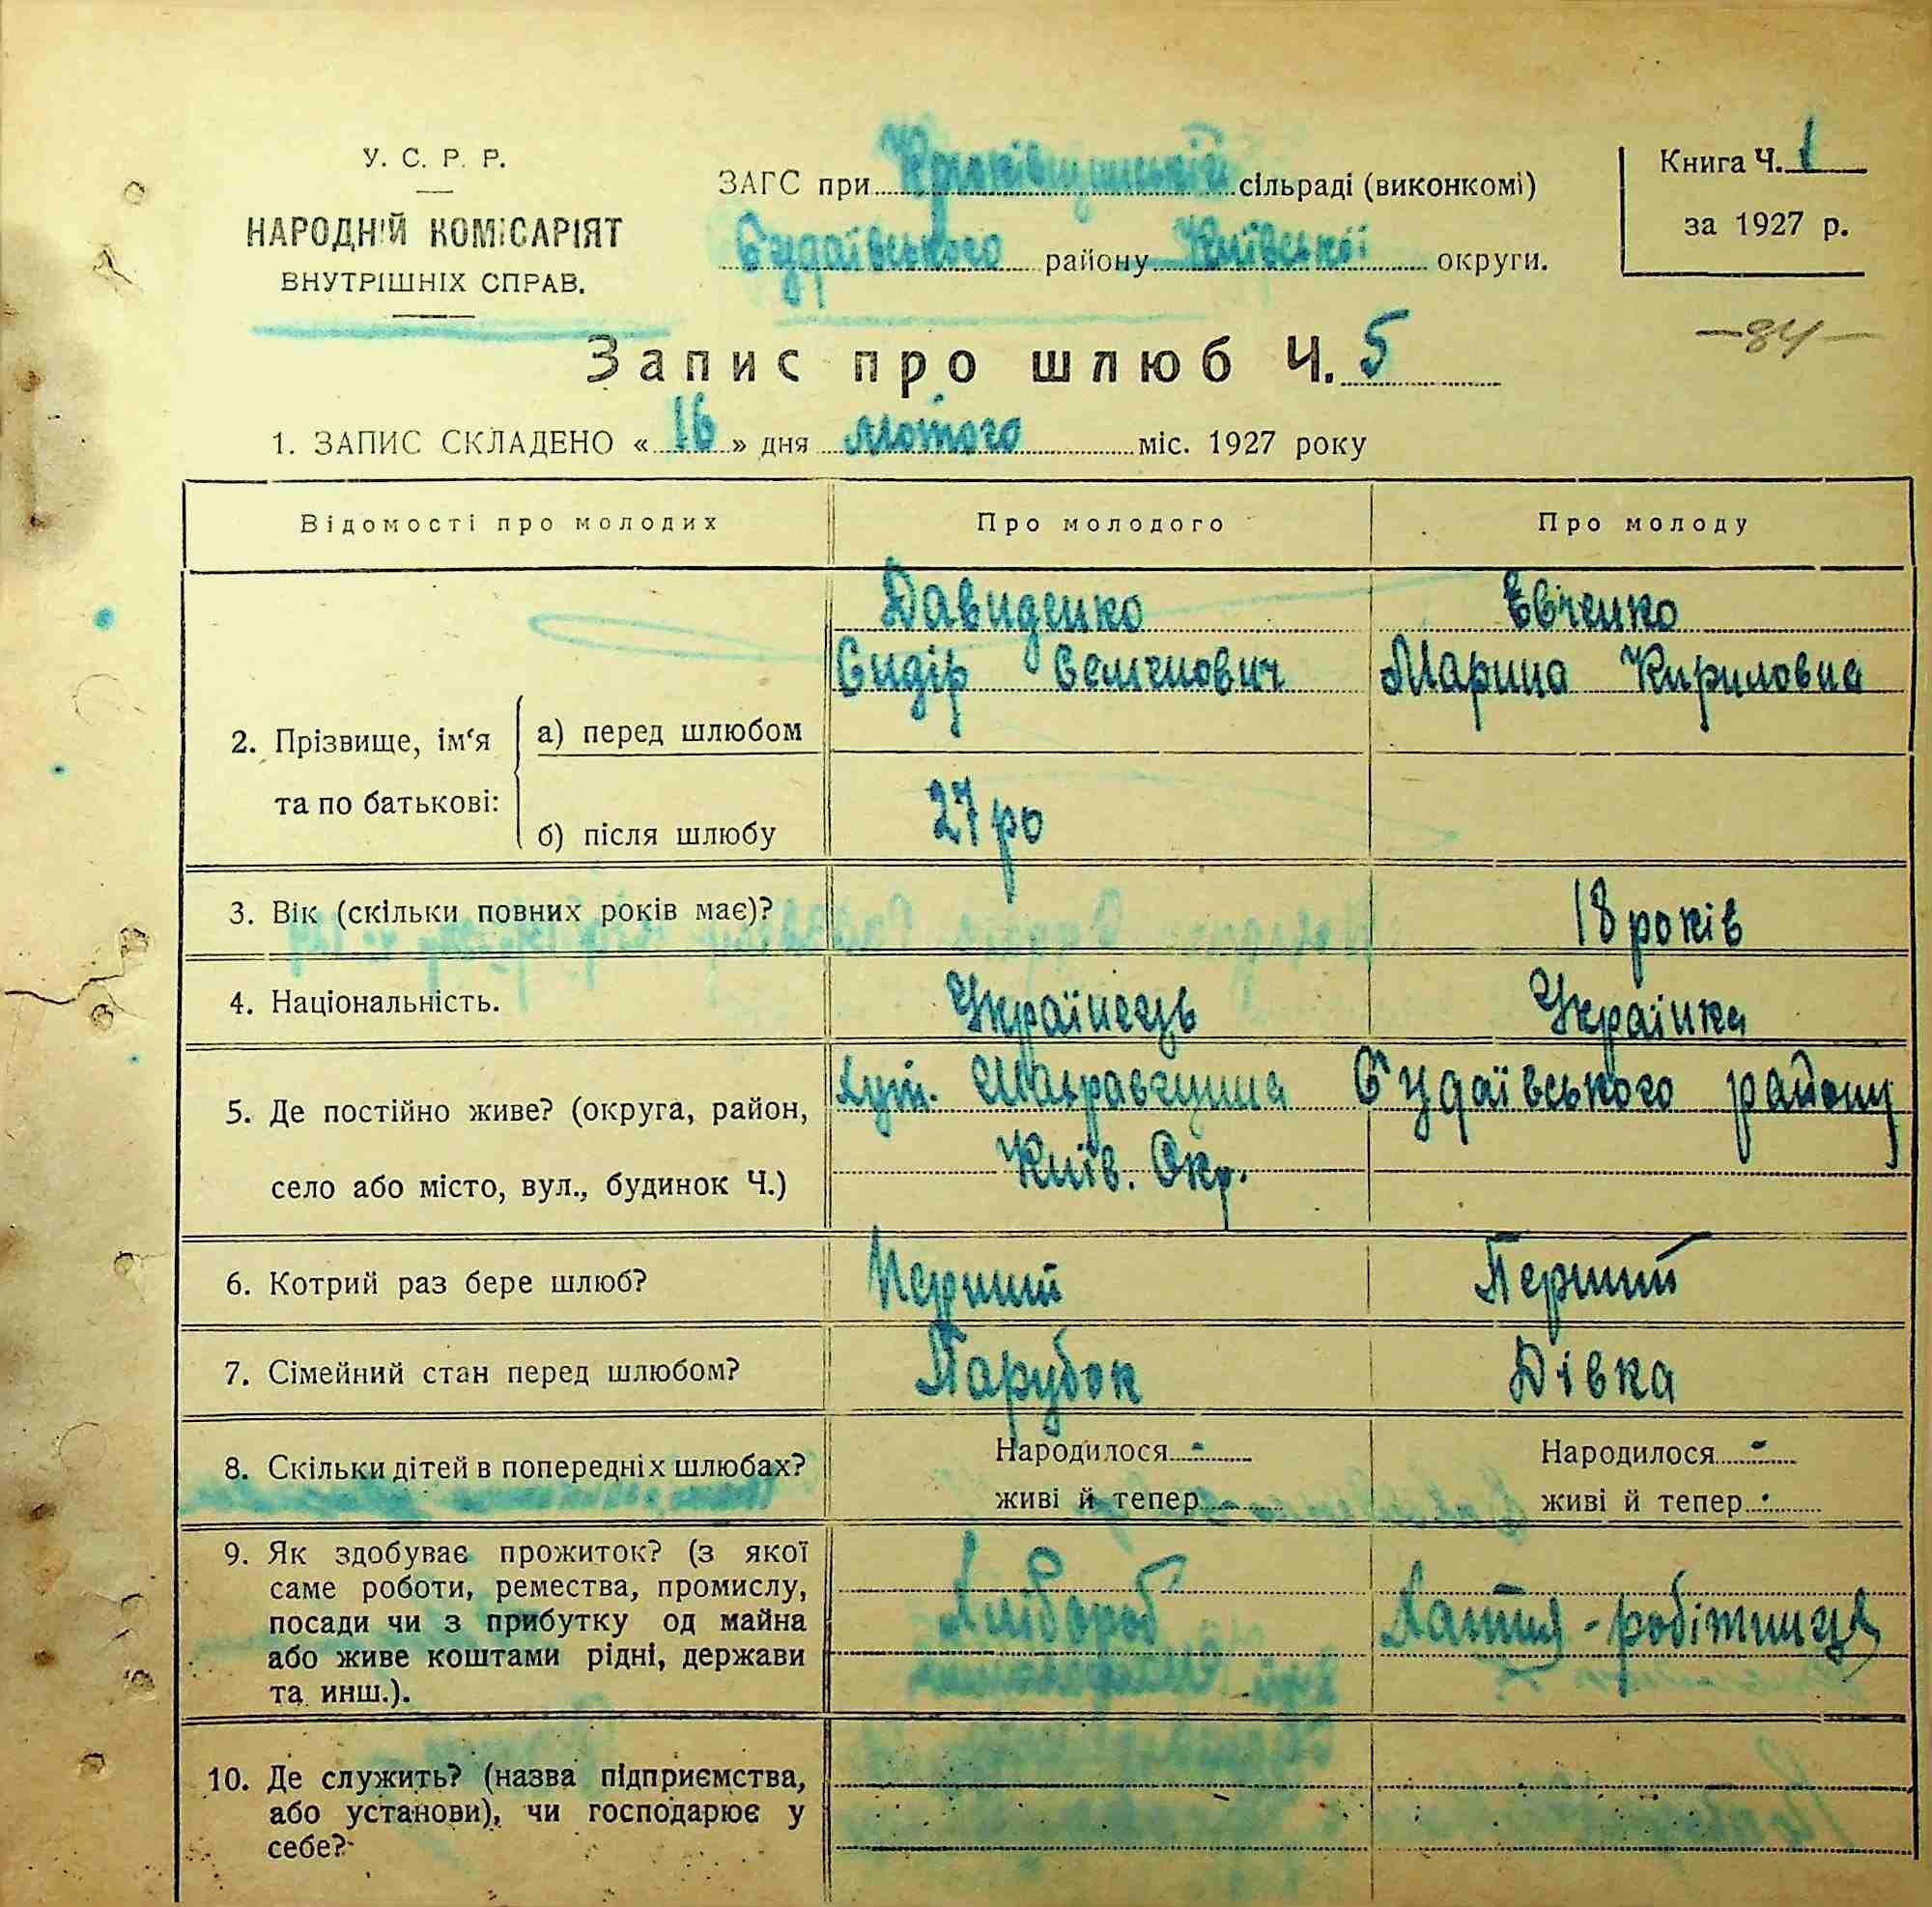 У. С. Р. Р.
НАРОДНІЙ КОМІСАРІЯТ
ВНУТРІШНІХ СПРАВ.
ЗАГС при сільраді (виконкомі)
Будаївського району Київської округи.
Книга Ч. 1
за 1927 р.
—84—
Запис про шлюб Ч. 5
1. ЗАПИС СКЛАДЕНО «16» дня лютого міс. 1927 року
Відомості про молодих Про молодого Про молоду
Давиденко Євченко
Сидір Семенович Марина Кириловна
2. Прізвище, ім'я та по батькові:
а) перед шлюбом
б) після шлюбу
27 ро
3. Вік (скільки повних років має)? 18 років
4. Національність. Українець Українка
5. Де постійно живе? (округа, район, село або місто, вул., будинок Ч.)
хут. Будаївського району
Київ. Окр.
6. Котрий раз бере шлюб? Перший Перший
7. Сімейний стан перед шлюбом? Парубок Дівка
8. Скільки дітей в попередніх шлюбах? Народилося - Народилося -
живі й тепер - живі й тепер -
9. Як здобуває прожиток? (з якої
саме роботи, ремества, промислу,
посади чи з прибутку од майна
або живе коштами рідні, держави
та инш.).
Хлібороб Хатня-робітниця
10. Де служить? (назва підприємства,
або установи), чи господарює у
себе?